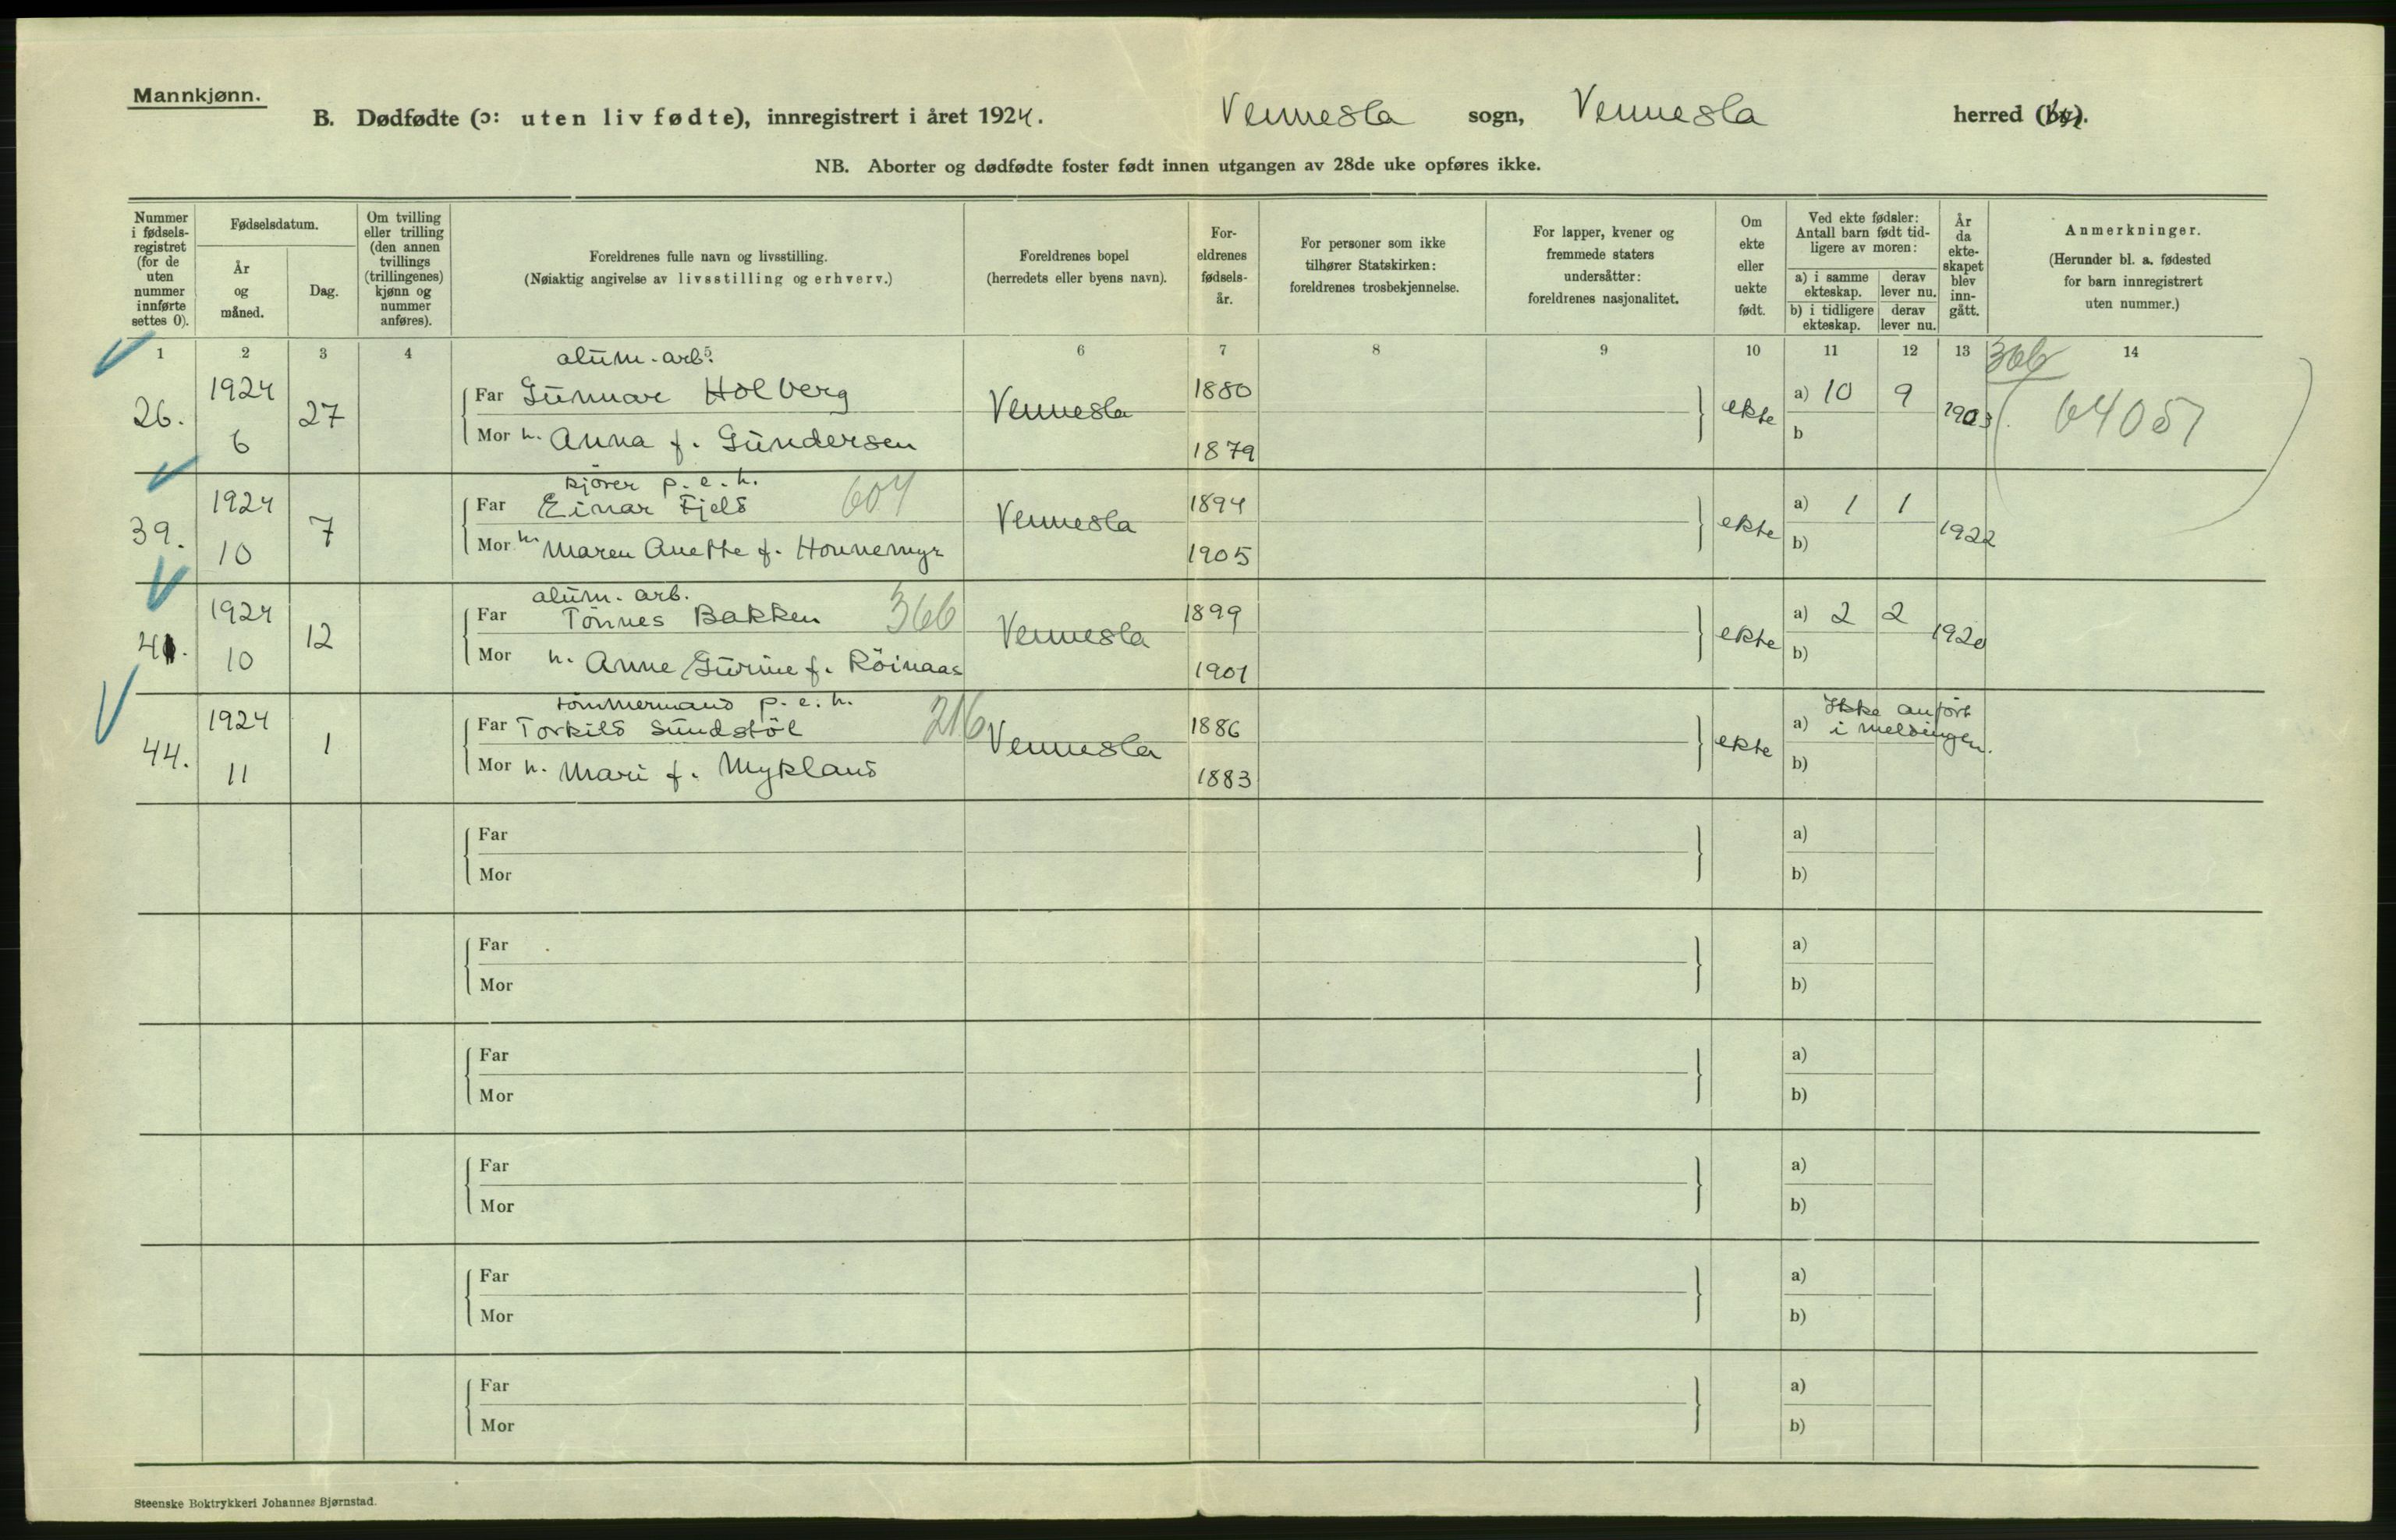 Mannkjønn.
B. Dødfødte (ɔ: uten liv fødte), innregistrert i året 1924. Vennesla sogn, Vennesla herred (by).
NB. Aborter og dødfødte foster født innen utgangen av 28de uke opføres ikke.
Nummer i fødsels-registret (for de uten nummer innførte settes 0).
Fødselsdatum.
År og måned.
Dag.
Om tvilling eller trilling (den annen tvillings (trillingenes) kjønn og nummer anføres).
Foreldrenes fulle navn og livsstilling.
(Nøiaktig angivelse av livsstilling og erhverv.)
Foreldrenes bopel
(herredets eller byens navn).
For-eldrenes fødsels-år.
For personer som ikke tilhører Statskirken: foreldrenes trosbekjennelse.
For lapper, kvener og fremmede staters undersåtter: foreldrenes nasjonalitet.
Om ekte eller uekte født.
Ved ekte fødsler: Antall barn født tid-ligere av moren:
a) i samme ekteskap. derav lever nu.
b) i tidligere ekteskap. derav lever nu.
År da ekte-skapet blev inn-gått.
Anmerkninger.
(Herunder bl. a. fødested for barn innregistrert uten nummer.)
1 2 3 4 6 7 8 9 10 11 12 13 14
alum. arb.
366
26. 1924 6 27 Far Gunnar Holberg Vennesla 1880 ekte a) 10 9 1903 64051
Mor h. Anna f. Gundersen 1879 b
kjører p. e. h.
39. 1924 10 7 Far Einar Fjeld 604 Vennesla 1894 ekte a) 1 1 1922
Mor h. Maren Anette f. Honnemyr 1905 b)
alum. arb.
41. 1924 10 12 Far Tönnes Bakken 366 Vennesla 1899 ekte a) 2 2 1920
Mor h. Anne Gurine f. Röinaas 1901 b)
tömmermand p. e. h.
44. 1924 11 1 Far Torkild Sundstöl 216 Vennesla 1886 ekte a) Ikke anfört i meldingen.
Mor h. Mari f. Mykland 1883 b)
Far a)
Mor b)
Far a)
Mor b)
Far a)
Mor b)
Far a)
Mor b)
Far a)
Mor b)
Far a)
Mor b)
Steenske Boktrykkeri Johannes Bjørnstad.